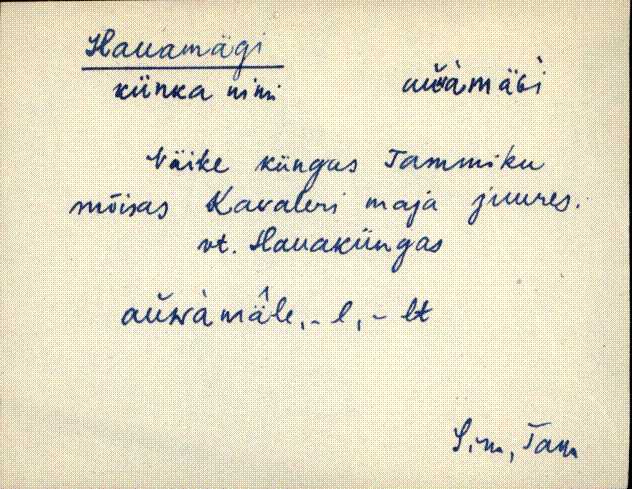 Hauamägi
künka nimi auwàmäGì
Väike küngas Tammiku
mõisas Kavaleri maja juures.
vt. Hauaküngas
aŭwàmä̂le, - l, - lt
Sim, Tam